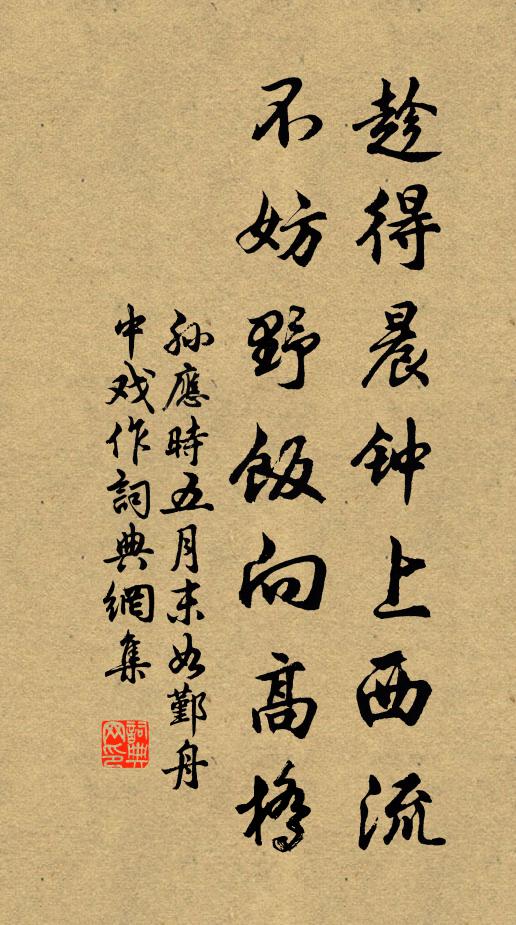 趁得晨钟上西流
不妨野飯向高橋
孫應時五月末如鄞舟
中戏作詞典網集
詞典網印